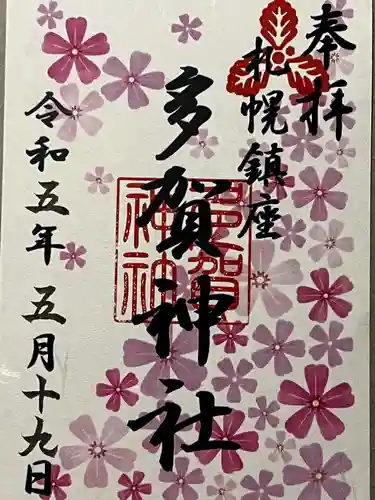 奉拝
札幌鎮座
多賀神社
多賀神社
令和五年五月十九日